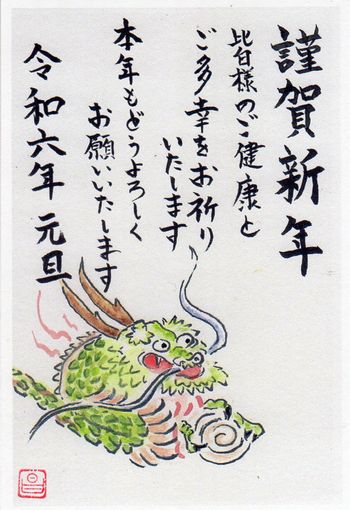 謹賀新年
皆様のご健康と
ご多幸をお祈り
いたします
本年もどうよろしく
お願いいたします
令和六年 元旦